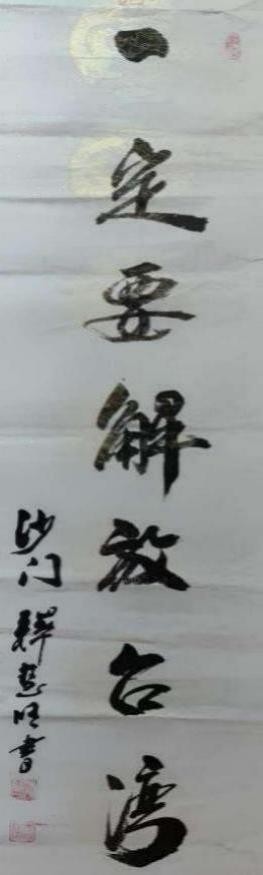 一定要解放台湾
沙门释慧明書